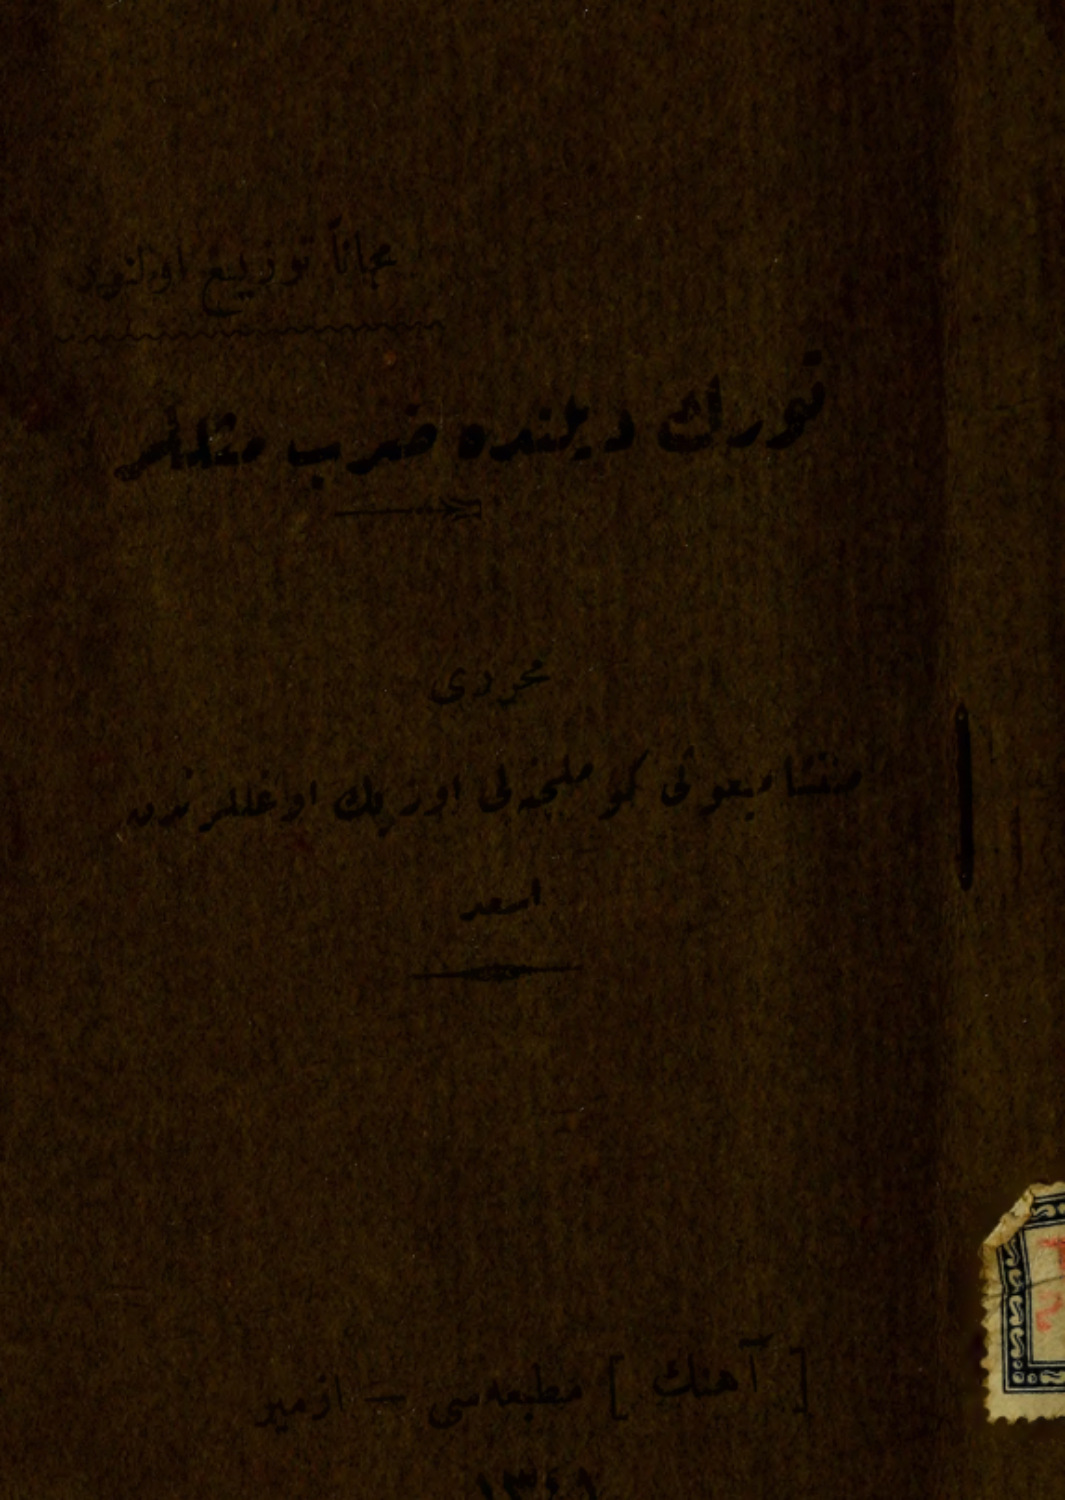 مجاناً توزيع اولنور
تورك ديلنده ضرب مثللر
محررى
منتشا مبعوثى كوملجنه‌لى اوزبك اوغللرندن
اسعد
[ آهنك ] مطبعه‌سى — ازمير